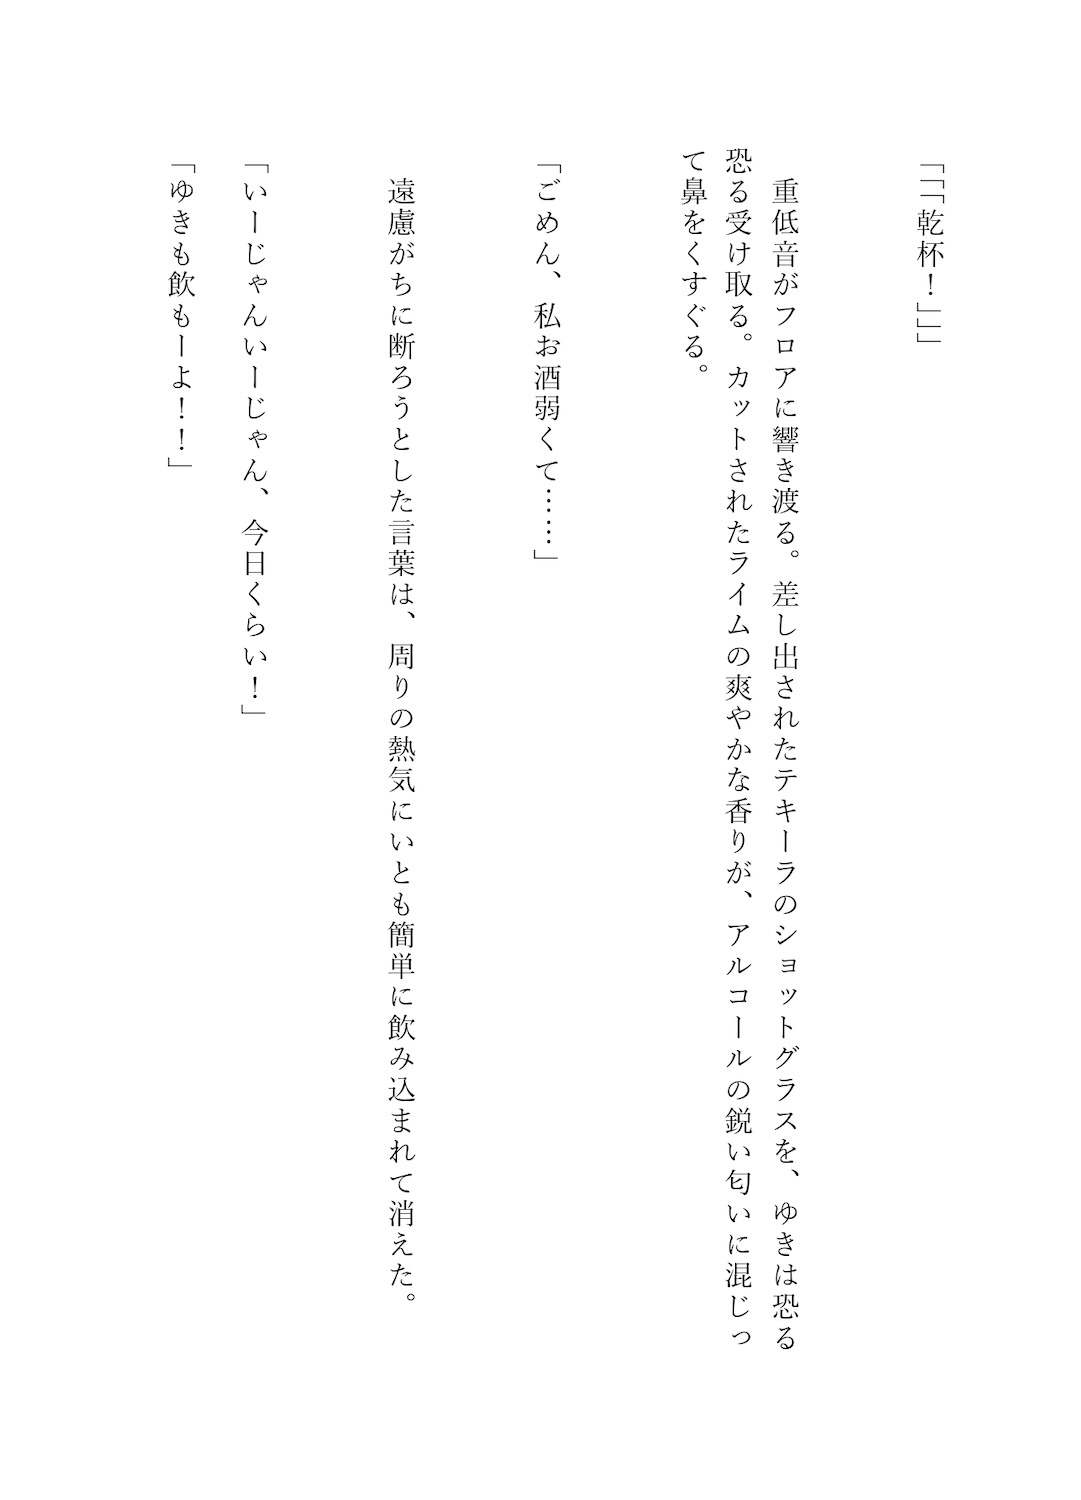 「「「乾杯！」」」
重低音がフロアに響き渡る。差し出されたテキーラのショットグラスを、ゆきは恐る
恐る受け取る。カットされたライムの爽やかな香りが、アルコールの鋭い匂いに混じっ
て鼻をくすぐる。
「ごめん、私お酒弱くて……」
遠慮がちに断ろうとした言葉は、周りの熱気にいとも簡単に飲み込まれて消えた。
「いーじゃんいーじゃん、今日くらい！」
「ゆきも飲もーよ！！」